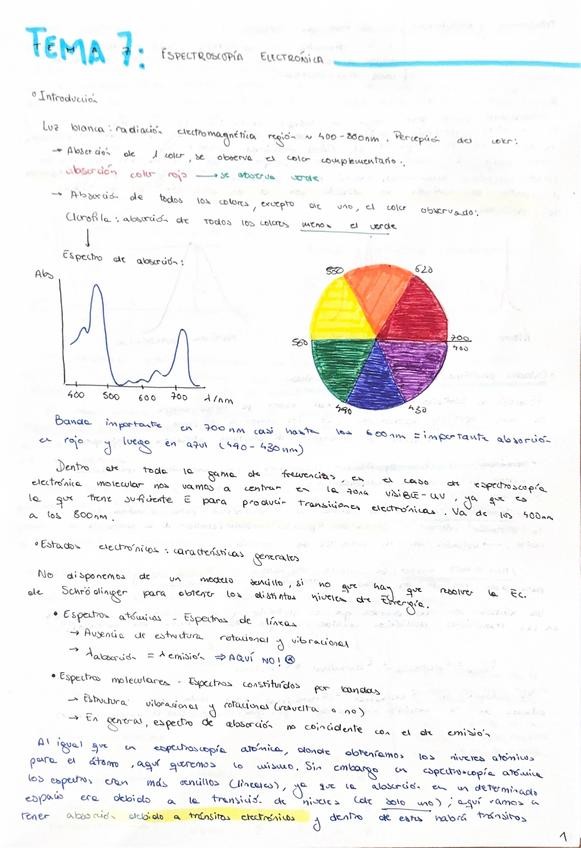 TEMA 7: ESPECTROSCOPÍA ELECTRÓNICA
º Introducción
Luz blanca: radiación electromagnética región ~ 400-800nm. Percepción del color:
→ Absorción de 1 color, se observa el color complementario:
absorción color rojo → se observa verde
→ Absorción de todos los colores, excepto de uno, el color observado:
Clorofila: absorción de todos los colores menos el verde
Espectro de absorción:
Abs
400 500 600 700 λ/nm
580 620
560 700
400
490 430
Banda importante en 700nm casi hasta los 600nm = importante absorción
en rojo y luego en azul (490-430nm)
Dentro de toda la gama de frecuencias, en el caso de espectroscopía
electrónica molecular nos vamos a centrar en la zona VISIBLE-UV, ya que es
la que tiene suficiente E para producir transiciones electrónicas. Va de los 400nm
a los 800nm.
• Estados electrónicos: características generales
No disponemos de un modelo sencillo, si no que hay que resolver la Ec.
de Schrödinger para obtener los distintos niveles de Energía.
• Espectros atómicos - Espectros de líneas
→ Ausencia de estructura rotacional y vibracional
→ λabsorción = λemisión ⇒ AQUÍ NO!
• Espectros moleculares - Espectros constituidos por bandas
→ Estructura vibracional y rotacional (resuelta o no)
→ En general, espectro de absorción no coincidente con el de emisión
Al igual que en espectroscopía atómica, donde obteníamos los niveles atómicos
para el átomo, aquí queremos lo mismo. Sin embargo en espectroscopía atómica
los espectros eran más sencillos (líneales), ya que la absorción en un determinado
espacio era debido a la transición de niveles (de solo uno); aquí vamos a
tener absorción debido a tránsitos electrónicos y dentro de estos habrá tránsitos
1